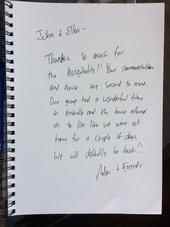 John & Ellen -
Thanks so much for
the hospitality!! Your communication
and house are second to none.
Our group had a wonderful time
in Nashville and the house allowed
us to live like we were at
home for a couple of days.
We will definitely be back!!
& Friends